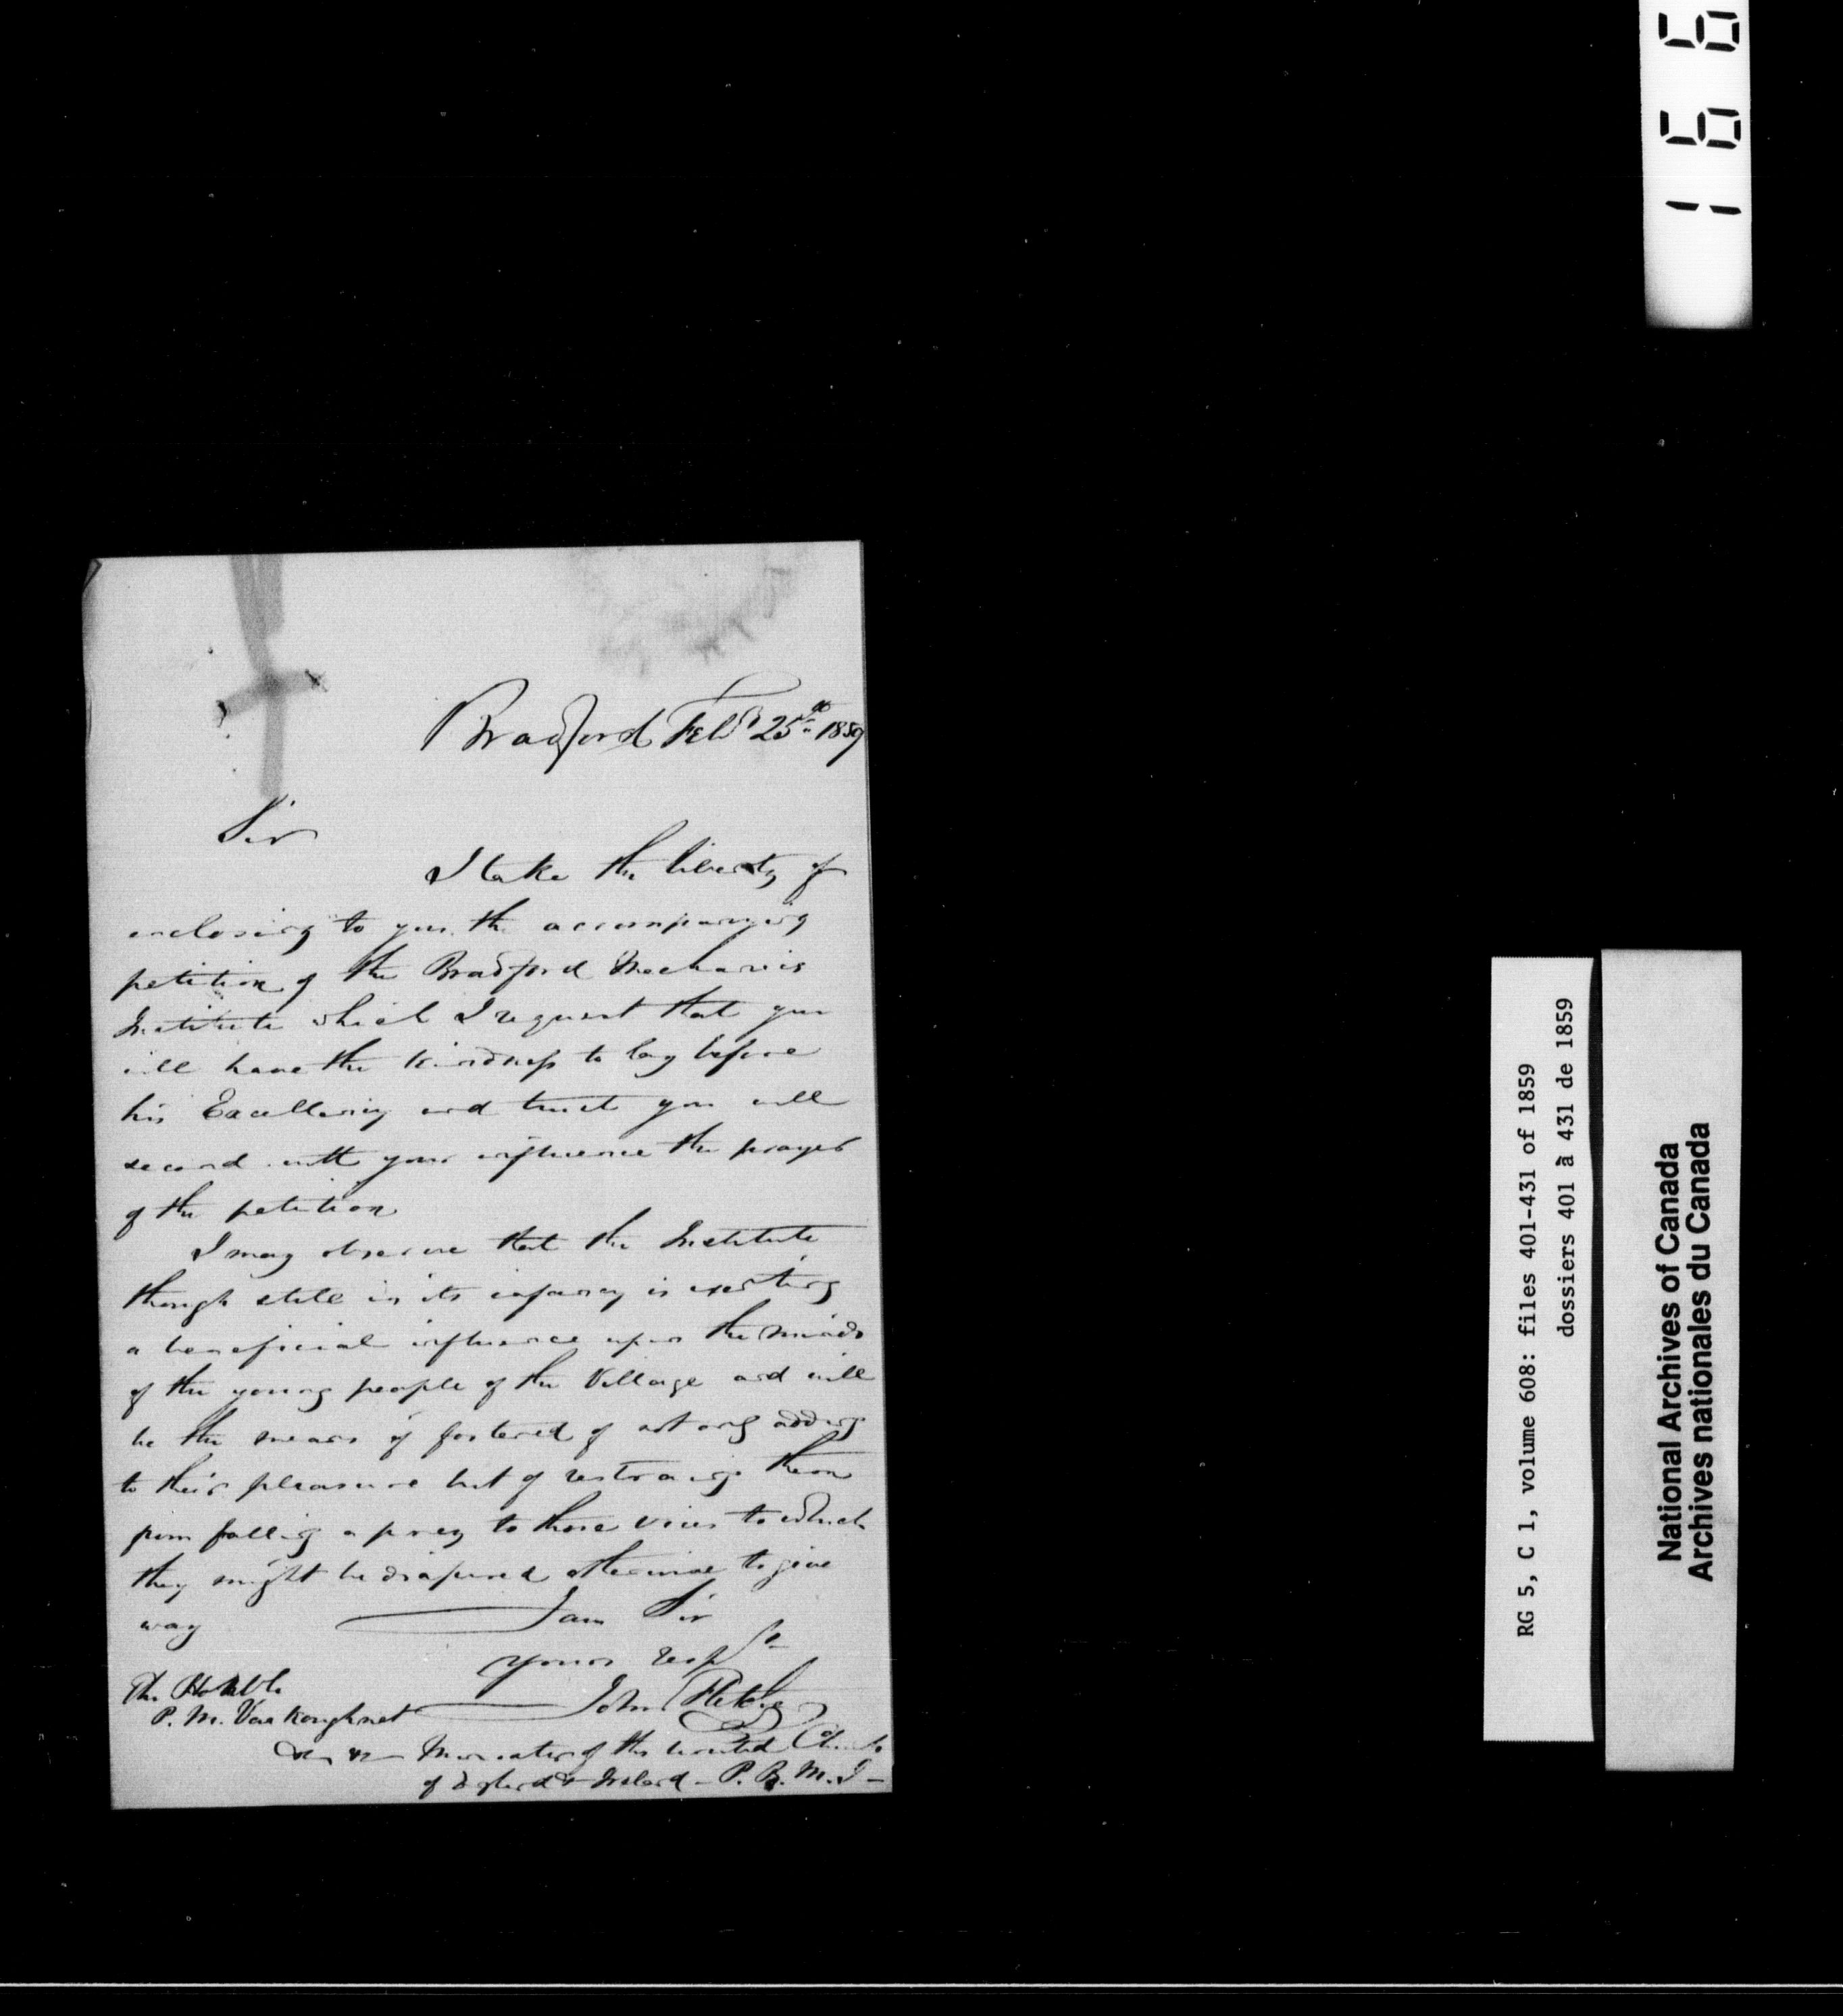 Bradford Feby 25th 1859
Sir
I take the liberty of
enclosing to you the accompanying
petition of the Bradford Mechanics
Institute which I request that you
will have the kindness to lay before
his Excellency and trust you will
second with your influence the prayer
of the petition
I may observe that the Institute
though still in its infancy is exerting
a beneficial influence upon the minds
of the young people of the Village and will
be the means if fostered of not only adding
to their pleasure but of restraining them
from falling a prey to those vices to which
they might be disposed otherwise to give
way
I am Sir
yours respy
John Fletcher
The Honble
P. M. VanKoughnet
Minister of the United Church
of England & Ireland - P. B. M. I -
166
RG 5, C 1, volume 608: files 401-431 of 1859
dossiers 401 à 431 de 1859
National Archives of Canada
Archives nationales du Canada